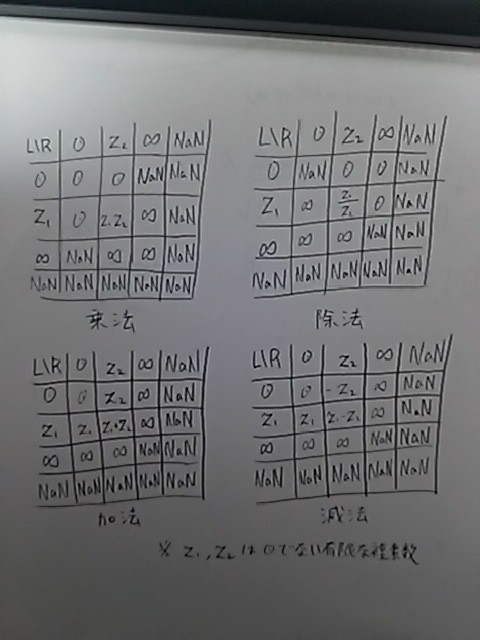 L\R 0 Z₂ ∞ NaN
0 0 0 NaN NaN
Z₁ 0 Z₁Z₂ ∞ NaN
∞ NaN ∞ ∞ NaN
NaN NaN NaN NaN NaN
乗法
L\R 0 Z₂ ∞ NaN
0 NaN 0 0 NaN
Z₁ ∞ Z₁/Z₂ 0 NaN
∞ ∞ ∞ NaN NaN
NaN NaN NaN NaN NaN
除法
L\R 0 Z₂ ∞ NaN
0 0 Z₂ ∞ NaN
Z₁ Z₁ Z₁+Z₂ ∞ NaN
∞ ∞ ∞ NaN NaN
NaN NaN NaN NaN NaN
加法
L\R 0 Z₂ ∞ NaN
0 0 -Z₂ ∞ NaN
Z₁ Z₁ Z₁-Z₂ ∞ NaN
∞ ∞ ∞ NaN NaN
NaN NaN NaN NaN NaN
減法
※ Z₁, Z₂ は 0でない有限な複素数